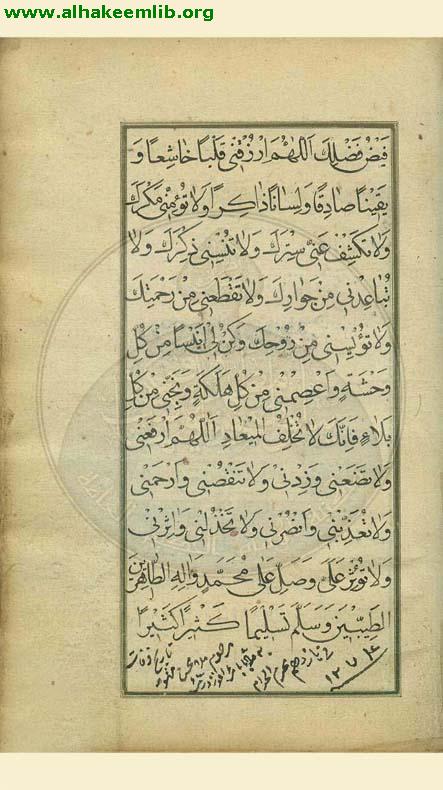 www.alhakeemlib.org
فَيْضِ فَضْلِكَ اَللّٰهُمَّ ارْزُقْنِي قَلْبًا خَاشِعًا وَ
يَقِينًا صَادِقًا وَلِسَانًا ذَاكِرًا وَلَا تُؤْمِنِّي مَكْرَكَ
وَلَا تَكْشِفْ عَنِّي سِتْرَكَ وَلَا تُنْسِنِي ذِكْرَكَ وَلَا
تُبَاعِدْنِي مِنْ جِوَارِكَ وَلَا تَقْطَعْنِي مِنْ رَحْمَتِكَ
وَلَا تُؤْيِسْنِي مِنْ رَوْحِكَ وَكُنْ لِي اَنِيسًا مِنْ كُلِّ
وَحْشَةٍ وَاعْصِمْنِي مِنْ كُلِّ هَلَكَةٍ وَنَجِّنِي مِنْ كُلِّ
بَلَاءٍ فَاِنَّكَ لَا تُخْلِفُ الْمِيعَادَ اَللّٰهُمَّ ارْفَعْنِي
وَلَا تَضَعْنِي وَزِدْنِي وَلَا تَنْقُصْنِي وَارْحَمْنِي
وَلَا تُعَذِّبْنِي وَانْصُرْنِي وَلَا تَخْذُلْنِي وَاٰثِرْنِي
وَلَا تُؤْثِرْ عَلَيَّ وَصَلِّ عَلٰى مُحَمَّدٍ وَاٰلِهِ الطَّاهِرِينَ
الطَّيِّبِينَ وَسَلَّمَ تَسْلِيمًا كَثِيرًا كَثِيرًا
تاريخ وفات مرحوم
يازدهم محرم الحرام
١٣٧٤